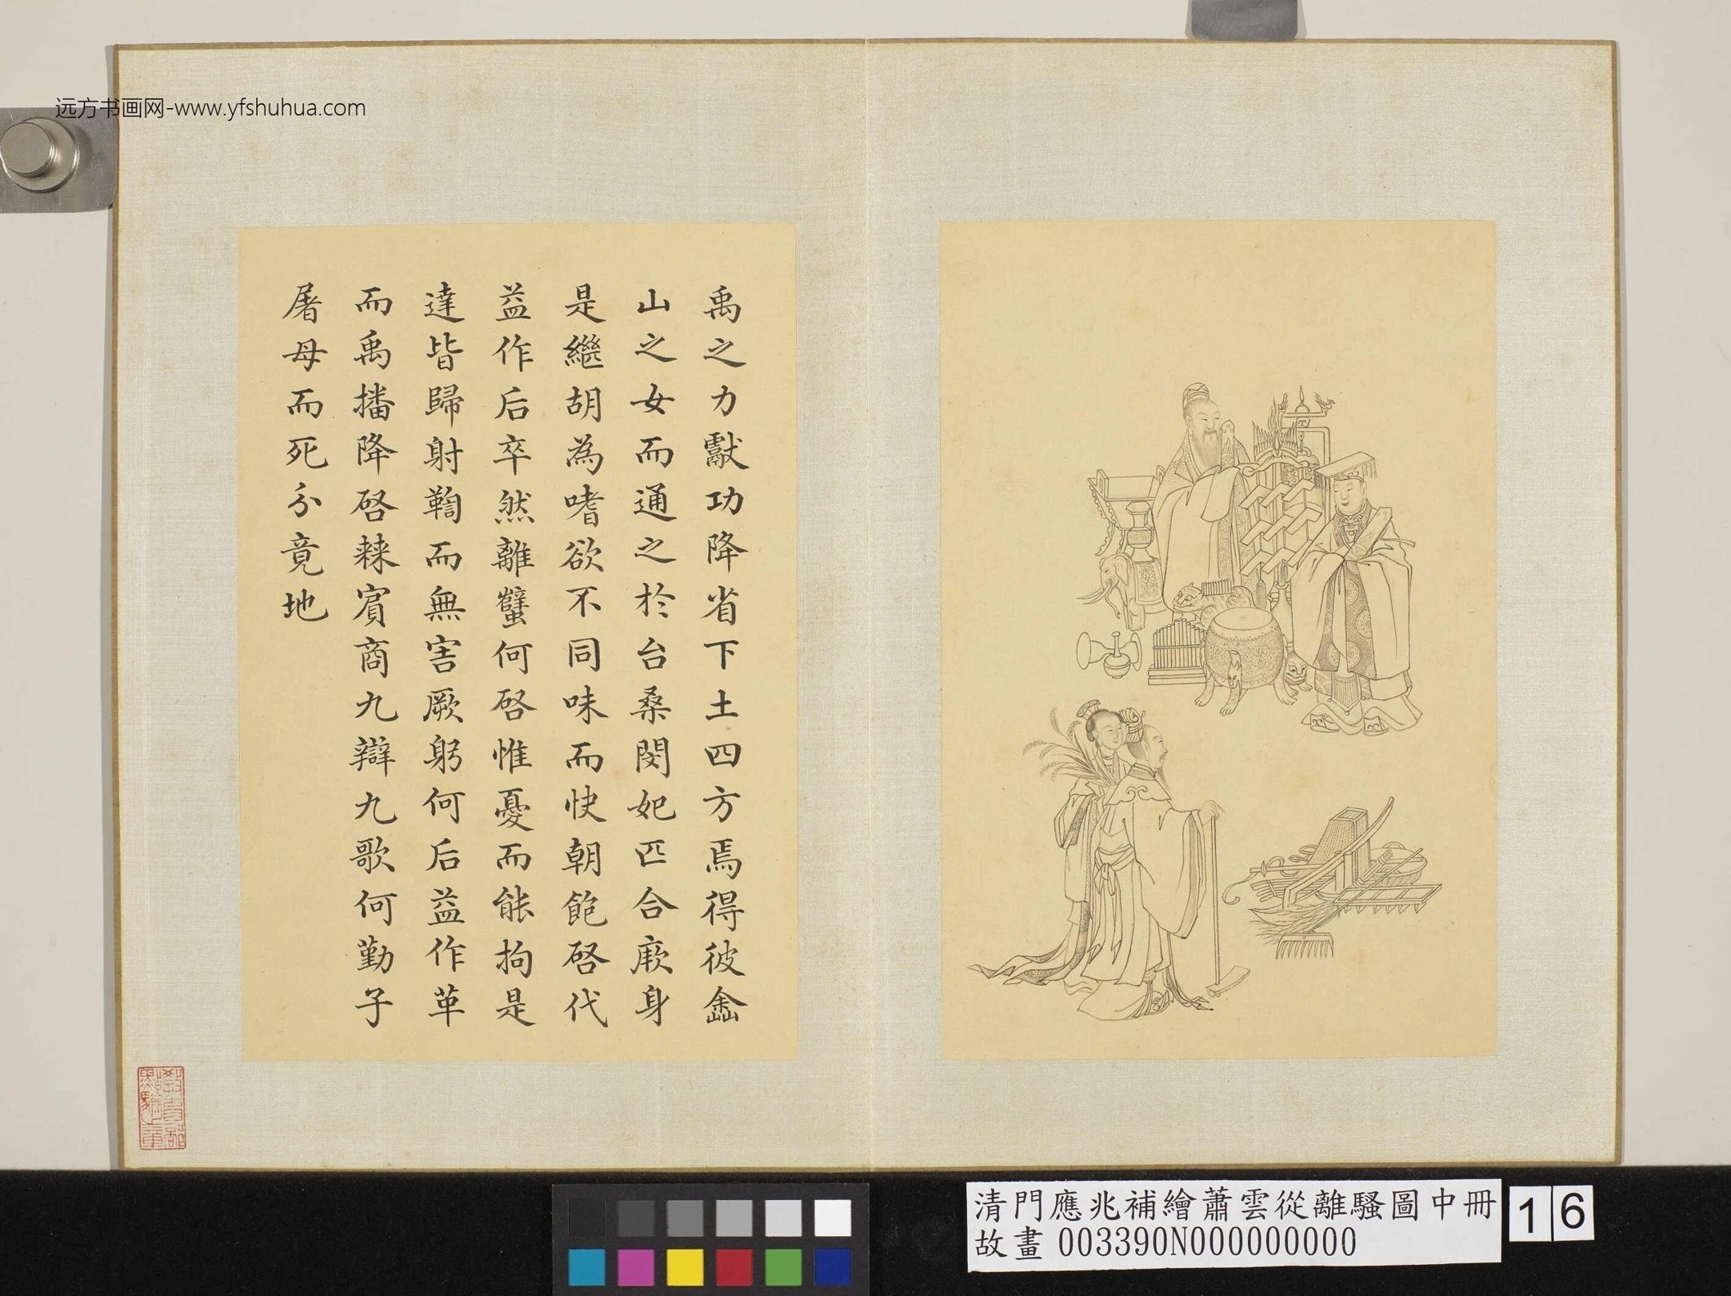 远方书画网-www.yfshuhua.com
禹之力獻功降省下土四方焉得彼嵞
山之女而通之於台桑閔妃匹合厥身
是繼胡為嗜欲不同味而快朝飽啓代
益作后卒然離蠥何啓惟憂而能拘是
達皆歸射鞫而無害厥躬何后益作革
而禹播降啓棘賓商九辯九歌何勤子
屠母而死分竟地
清門應兆補繪蕭雲從離騷圖中冊
故畫 003390N000000000
16